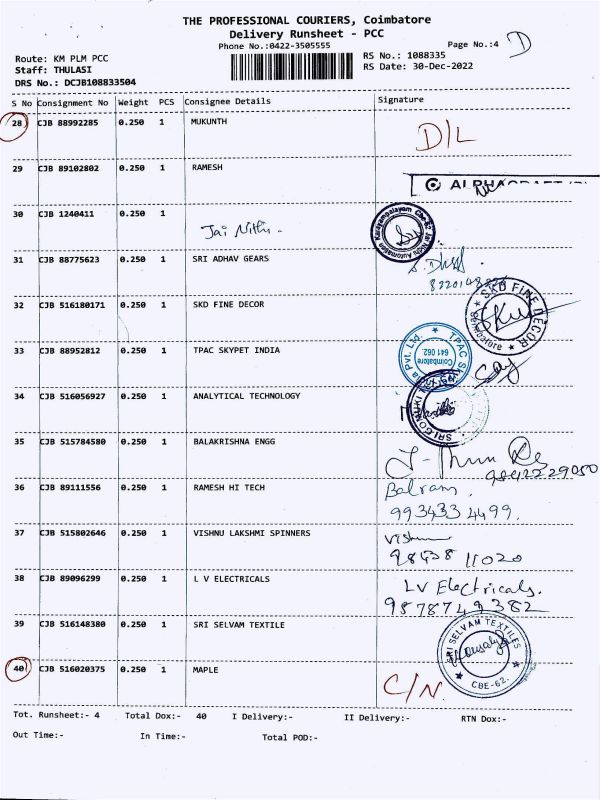 THE PROFESSIONAL COURIERS, Coimbatore
Delivery Runsheet - PCC
Phone No.:0422-3505555
Page No.:4 D
Route: KM PLM PCC
RS No.: 1088335
Staff: THULASI
RS Date: 30-Dec-2022
DRS No.: DCJB108833504
S No Consignment No Weight PCS Consignee Details Signature
28 CJB 88992285 0.250 1 MUKUNTH D/L
29 CJB 89102802 0.250 1 RAMESH
30 CJB 1240411 0.250 1 Jai Nithi -
31 CJB 88775623 0.250 1 SRI ADHAV GEARS
32 CJB 516180171 0.250 1 SKD FINE DECOR SKD FINE DECOR
33 CJB 88952812 0.250 1 TPAC SKYPET INDIA Coimbatore 641 062
34 CJB 516056927 0.250 1 ANALYTICAL TECHNOLOGY
35 CJB 515784580 0.250 1 BALAKRISHNA ENGG
9842229050
36 CJB 89111556 0.250 1 RAMESH HI TECH Balram.
993433 4499.
37 CJB 515802646 0.250 1 VISHNU LAKSHMI SPINNERS
98438 11020
38 CJB 89096299 0.250 1 L V ELECTRICALS LV Electricals.
9578749382
39 CJB 516148380 0.250 1 SRI SELVAM TEXTILE SRI SELVAM TEXTILES CBE-62.
40 CJB 516020375 0.250 1 MAPLE C/N.
Tot. Runsheet:- 4 Total Dox:- 40 I Delivery:- II Delivery:- RTN Dox:-
Out Time:- In Time:- Total POD:-